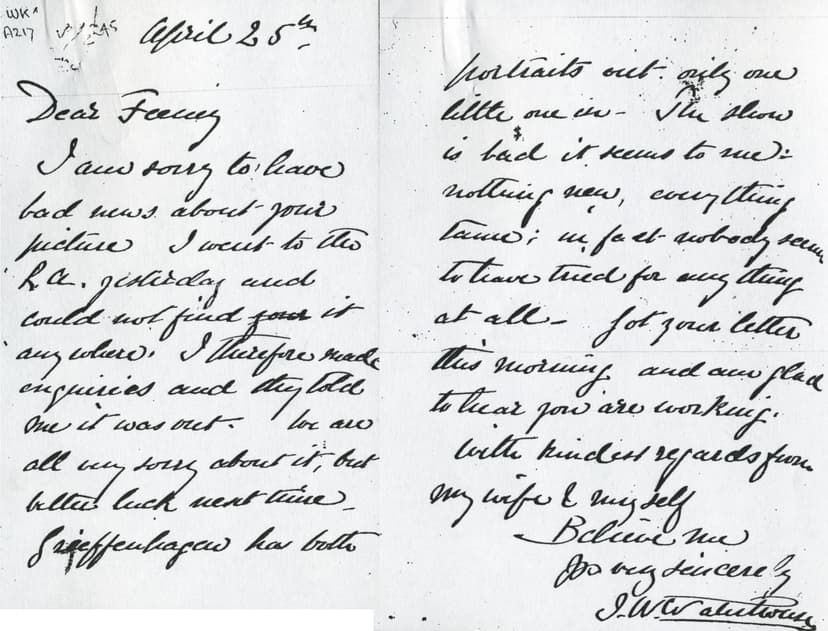 WK
A217
April 25th.
Dear Feeney
I am sorry to have
bad news about your
picture I went to the
R.A. yesterday and
could not find your it
anywhere. I therefore made
enquiries and they told
me it was out. We are
all very sorry about it, but
better luck next time –
Greiffenhagen has both
portraits out. only one
little one in – The show
is bad it seems to me:
nothing new, everything
tame; in fact nobody seems
to have tried for anything
at all – Got your letter
this morning and am glad
to hear you are working.
With kindest regards from
my wife & myself
Believe me
Yrs very sincerely
J. W. Waterhouse